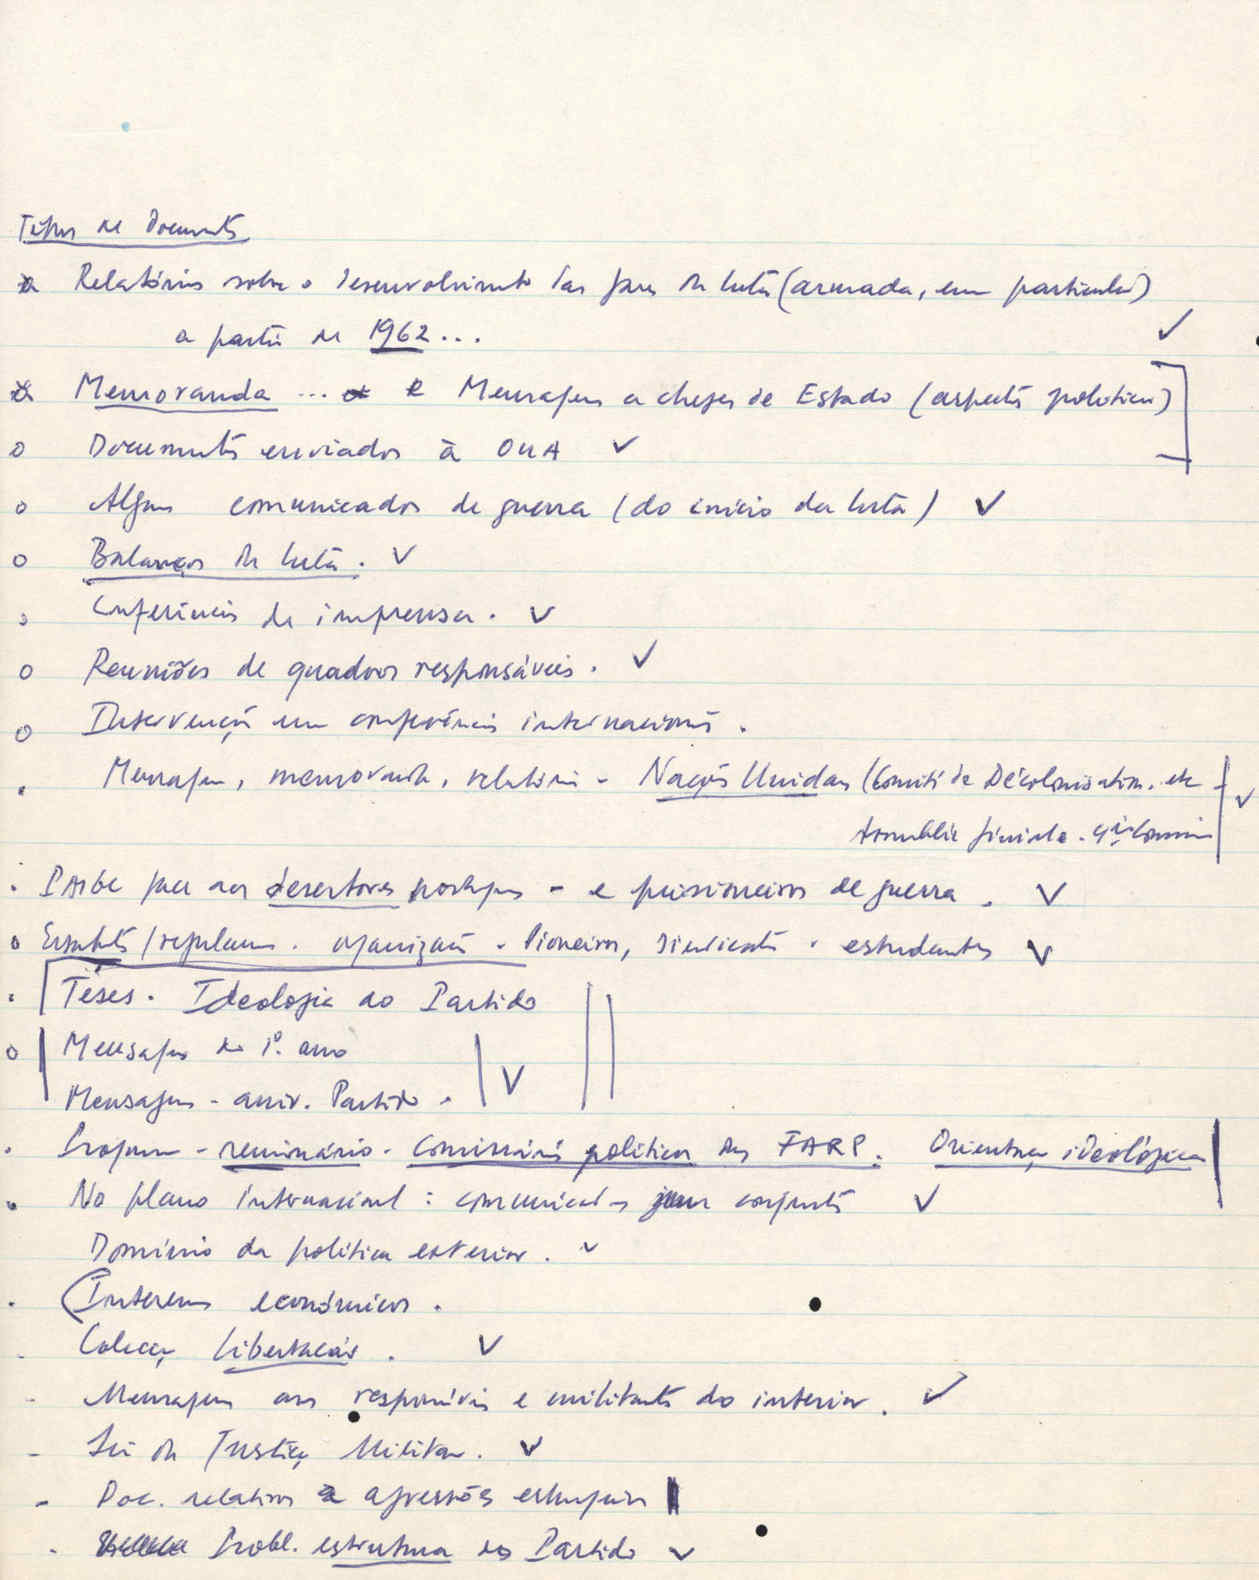 Tipos de Documents
Relatórios sobre o desenvolvimento das fases da luta (armada, em particular)
a partir de 1962...
Memoranda ... e Mensagens a chefes de Estado (aspects politicos)
o Documents enviados à OUA ✓
o Alguns comunicados de guerra (do início da luta) ✓
o Balanços da luta. ✓
o Conferências de imprensa. ✓
o Reuniões de quadros responsáveis. ✓
o Intervenções em conferências internacionais.
. Mensagens, memoranda, relatórios - Nações Unidas (Comité de Décolonisation, etc
Assemblée Générale. 4ª Comm
. para aos desertores portugueses - e prisioneiros de guerra. ✓
o Estatuts / regulamen. organização - Pioneiros, Sindicats. estudantes ✓
. Téses. Ideologia do Partido
o Mensagens do 1º. ano
Mensagens - aniv. Partido - ✓
. Program - seminário - Comissários politicos das FARP. Orientação ideológica
. No plano internacional: comunicados conjuntos ✓
Domínio da politica exterior. ✓
. (Interesses económicos.
Colecção Libertação. ✓
- Mensagens aos responsáveis e militants do interior. ✓
- Lei da Justiça Militar. ✓
- Doc. relativos a agressões estrangeiras
- Probl. estrutura do Partido ✓